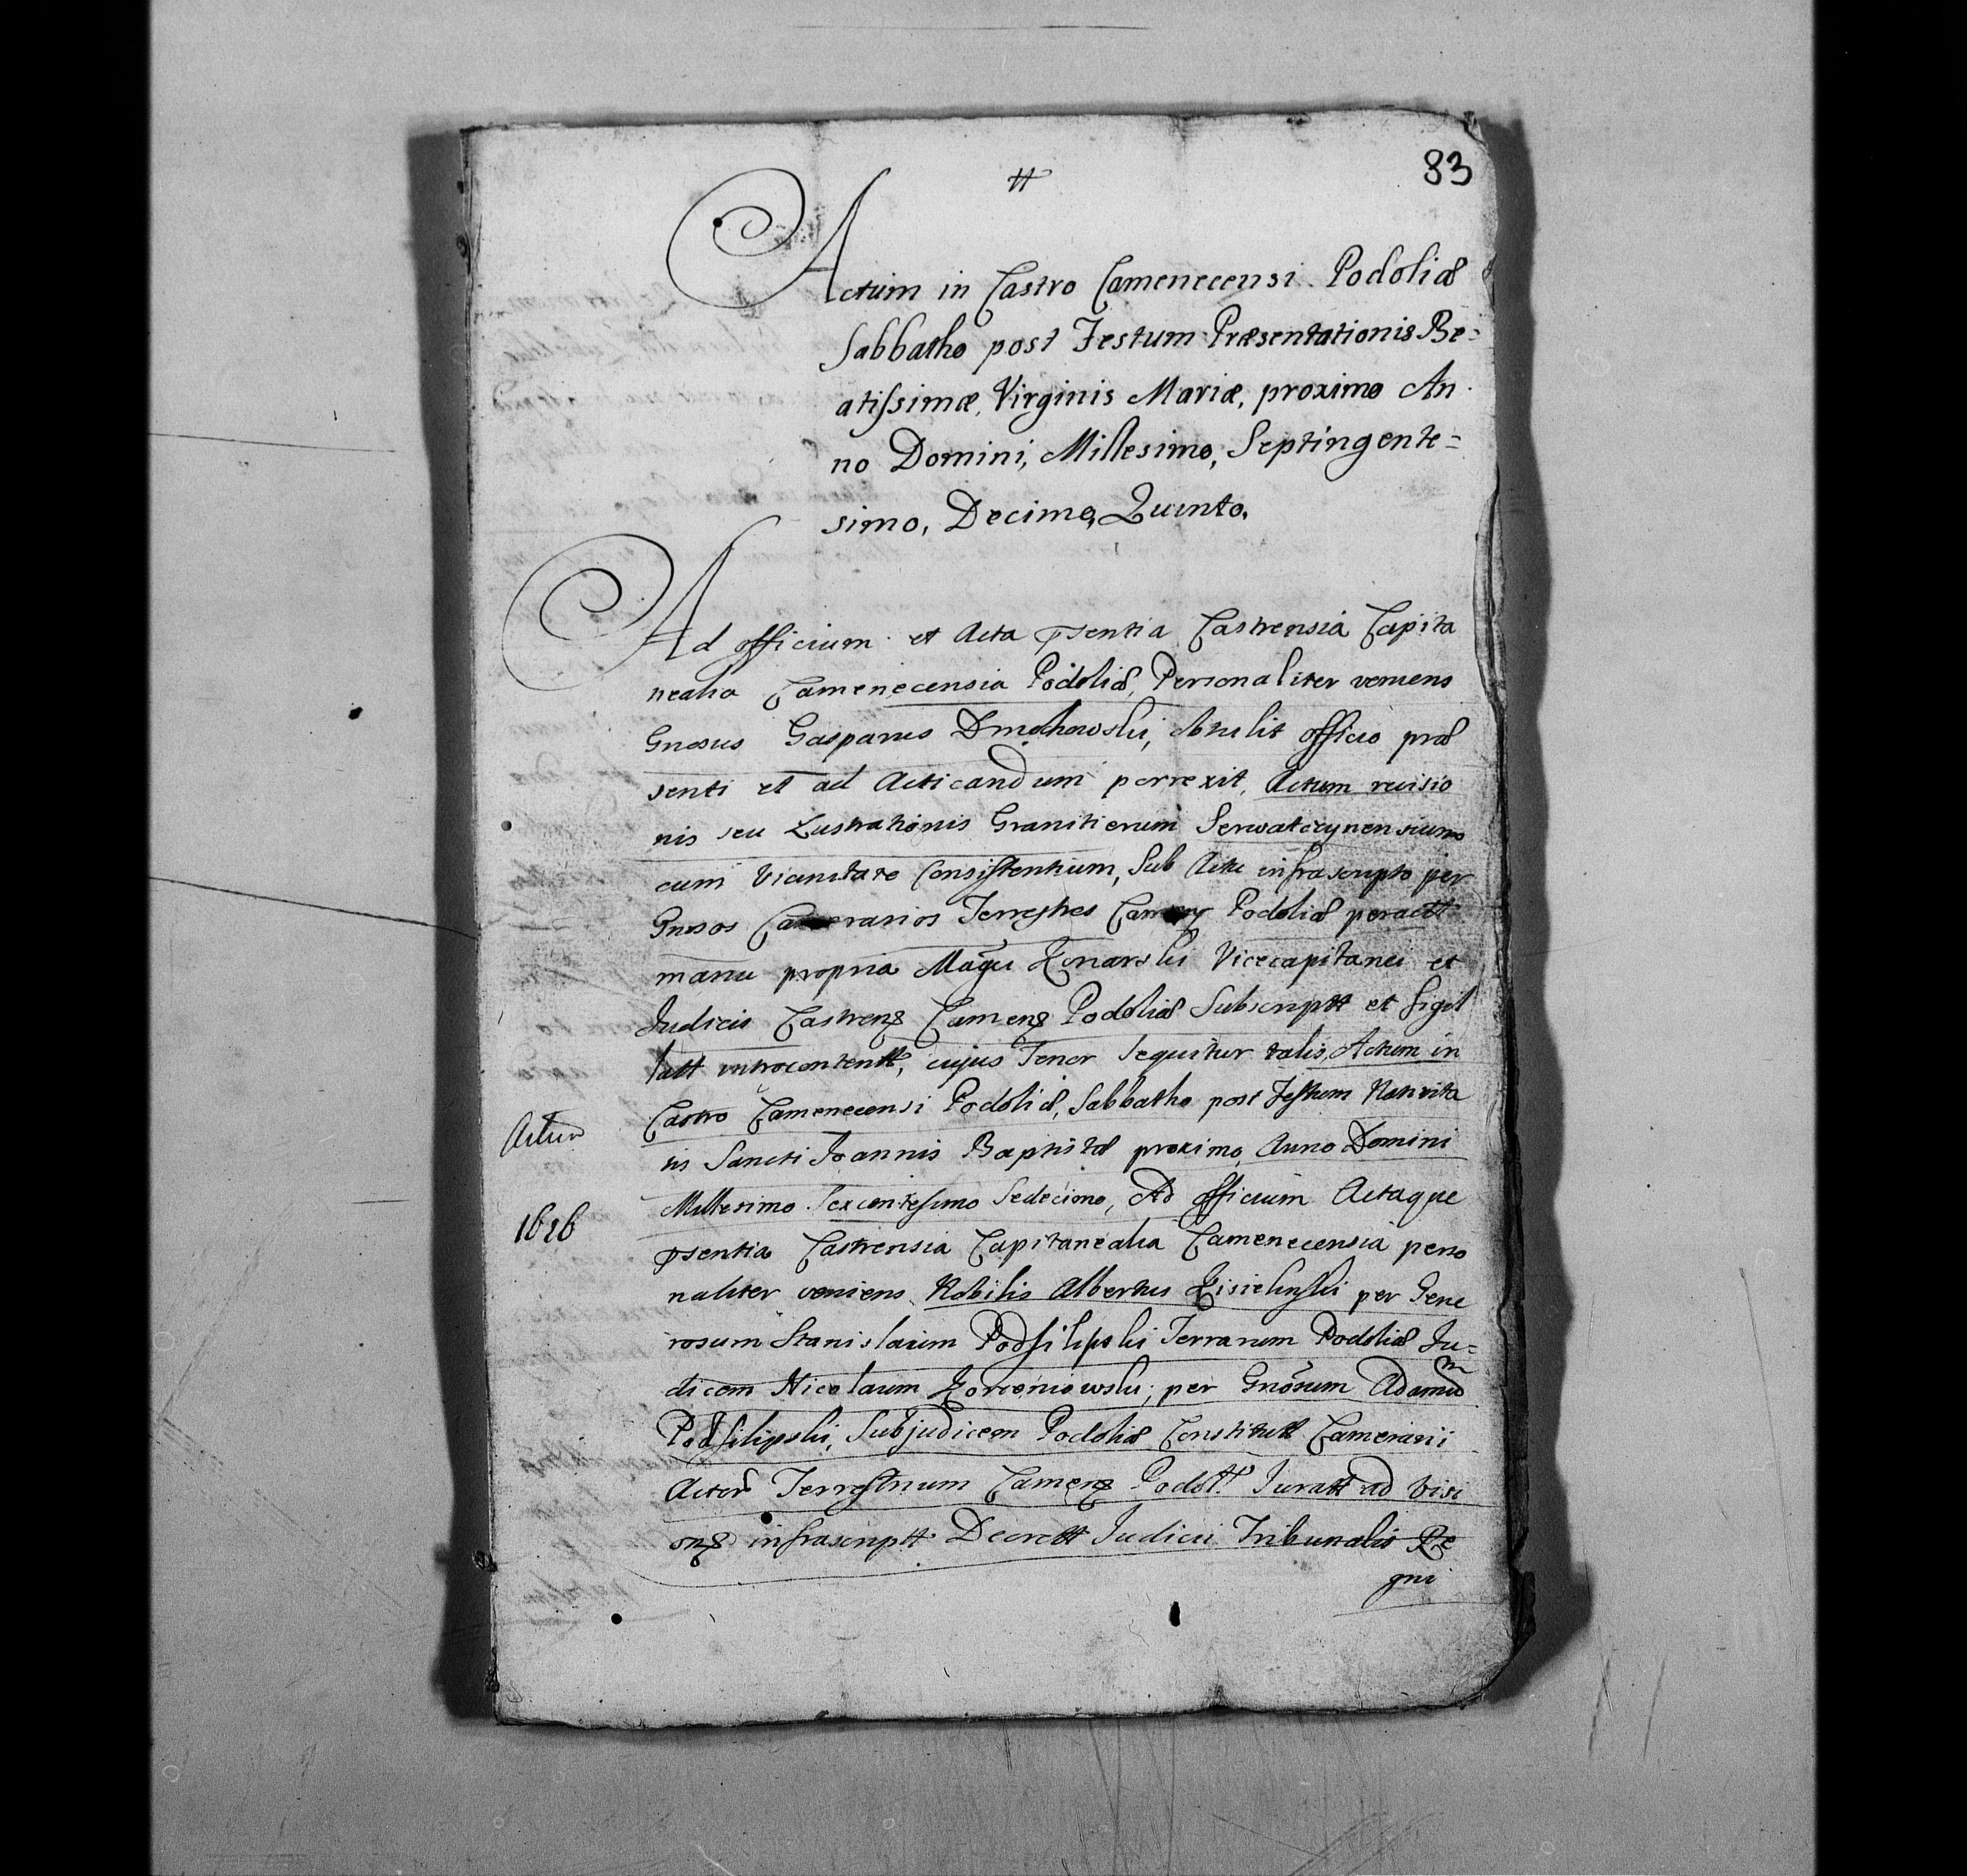 83
Actum in Castro Camenecensi Podoliæ
Sabbatho post Festum Præsentationis Be=
atissimæ, Virginis Mariæ, proximo An
no Domini, Millesimo, Septingente=
simo, Decimo, Quinto.
Ad officium et Acta psentia Castrensia Capita
nealia Camenecensia Podoliæ, Personaliter veniens
Gnosus Gasparus Dmochowski, obtulit officio præ
senti et ad Acticandum porrexit, Actum revisio
nis seu Lustrationis Granitierum Serwatczynensium
cum Vicinitate Consistentium, Sub Actu infrascripto per
Gnosos Camerarios Terrestres Podoliæ peractt
manu propria Magci Konarski Vicecapitanei et
Judicis Castrens Camens Podoliæ Subscriptt et Sigil
latt introcontentt, cujus Tenor Sequitur talis, Actum in
Castro Camenecensi Podoliæ, Sabbatho post Festum Nativita
tis Sancti Joannis Baptistæ proximo, Anno Domini
Actum
Millesimo Sexcentesimo Sedecimo, Ad officium Actaque
1616
psentia Castrensia Capitanealia Camenecensia perso
naliter veniens Nobilis Albertus Kisielinski per Gene
rosum Stanislaum Podfilipski Terrarum Podoliæ Ju=
dicem Nicolaum Korceniowski, per Gnosum Adamum
Podfilipski, Subjudicem Podoliæ Constitutt Camerarii
Actor Terrestrium Camens Podol. Juratt ad Visi
ons infrascriptt Decrett Judicii Tribunalis Re
gni